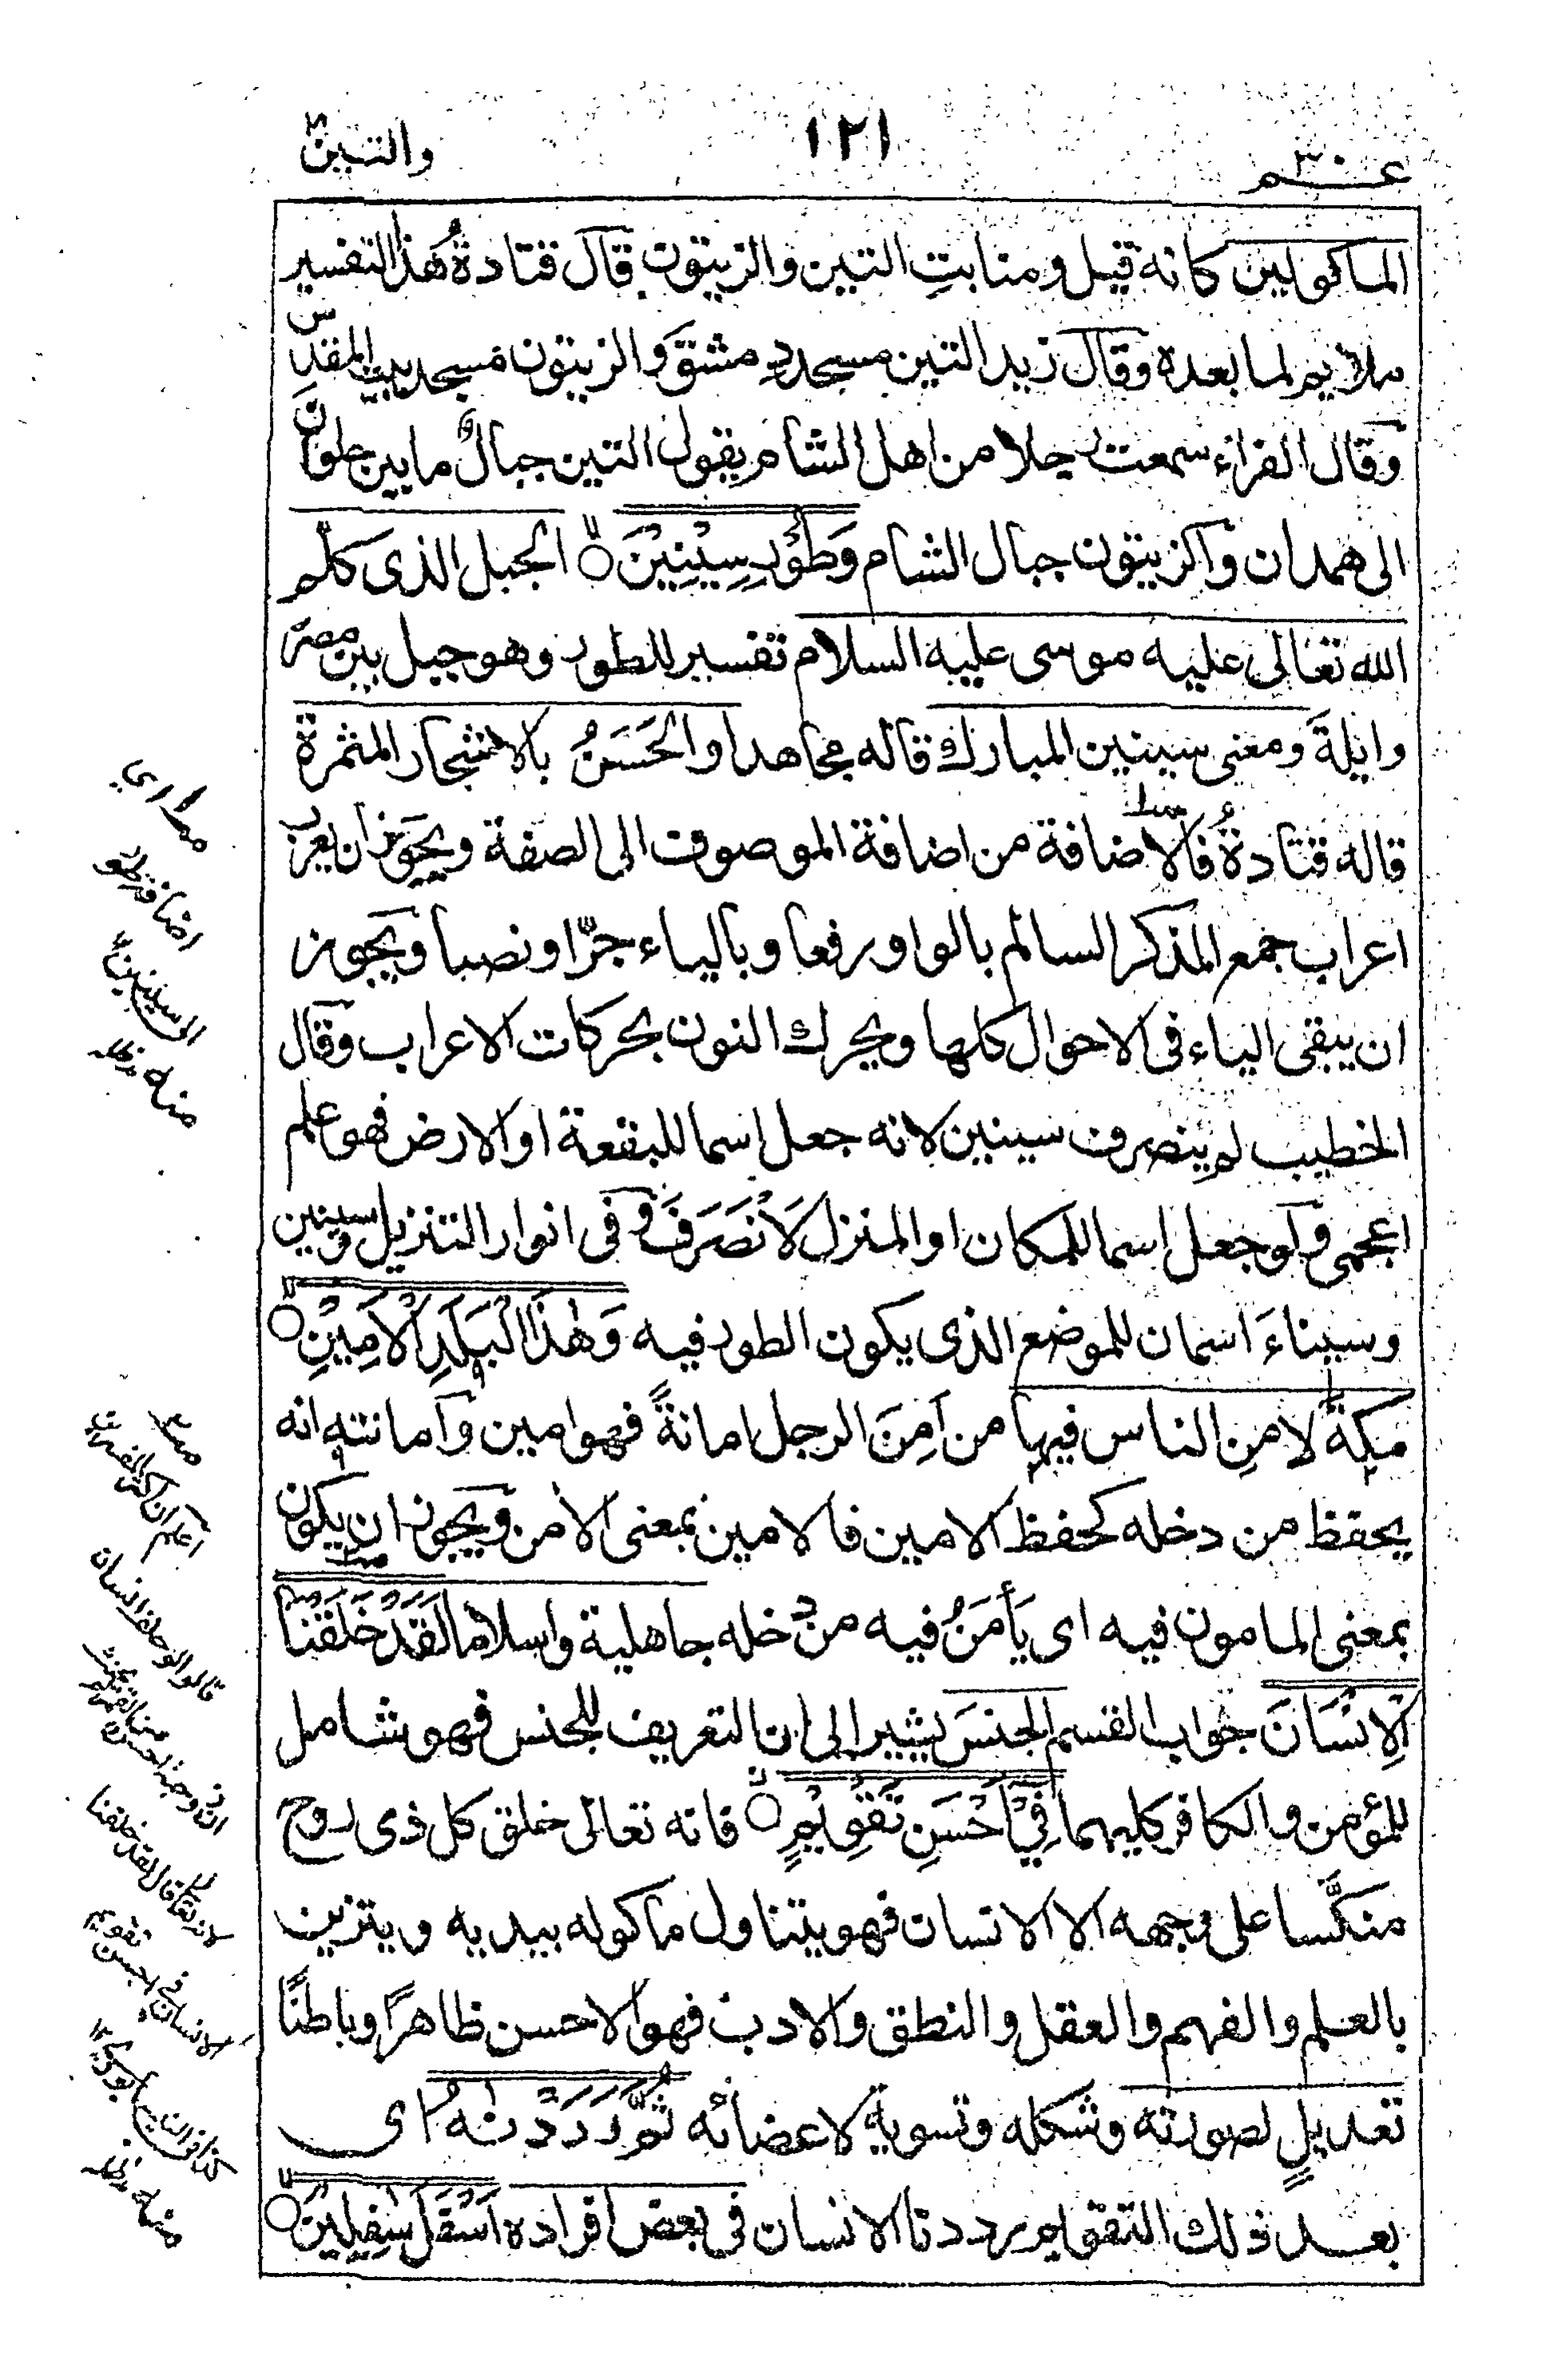 عـــم ٣٠
١٢١
والتـين
الماكولين كانه قيل ومنابتِ التين والزيتون قال قتادةُ هٰذا التفسير
ملايم لما بعده وقال زيد التين مسجد دمشق والزيتون مسجد بيت المقدس
وقال الفراء سمعت رجلا من اهل الشام يقول التين جبالٌ ما بين حلوان
الى همدان والزيتون جبال الشام وَطُوْرِ سِيْنِيْنَ ۝ الجبل الذى كلم
الله تعالى عليه موسى عليه السلام تفسير للطور وهو جبل بين مصر
وايلةَ ومعنى سينين المبارك قاله مجاهد او الحَسَنُ بالاشجار المثمرة
قاله قتادةُ فالاضافة من اضافة الموصوف الى الصفة ويجوز ان يعرب
اعراب جمع المذكر السالم بالواو رفعا وبالياء جرًّا ونصبا ويجوز
ان يبقى الياء فى الاحوال كلها ويحرك النون بحركات الاعراب وقال
الخطيب لم ينصرف سينين لانه جعل اسما للبقعة او الارض فهو علم
اعجمى ولو جعل اسما للمكان او المنزل لَانْصَرَفَ وفى انوار التنزيل وسينين
وسيناءَ اسمان للموضع الذى يكون الطور فيه وَهٰذَا الْبَلَدِ الْاَمِيْنِ ۝
مكةَ لامنِ الناس فيها من اَمِنَ الرجل امانةً فهو امين وامانته انه
يحفظ من دخله كحفظ الامين فالامين بمعنى الاٰمن ويجوز ان يكون
بمعنى المامون فيه اى يأمَنُ فيه من دخله جاهلية واسلاما لَقَدْ خَلَقْنَا
الْاِنْسَانَ جواب القسم الجنسَ يشير الى ان التعريف للجنس فهو شامل
للمؤمن والكافر كليهما فِيْٓ اَحْسَنِ تَقْوِيْمٍ ۝ فانه تعالى خلق كل ذى روح
منكَّسا على وجهه الا الانسان فهو يتناول ماكوله بيديه ويتزين
بالعلم والفهم والعقل والنطق والادب فهو الاحسن ظاهرًا وباطنًا
تعديلٍ لصورته وشكله وتسوية لاعضائه ثُمَّ رَدَدْنٰهُ اى
بعـــد ذلك التقويم رددنا الانسان فى بعض افراده اَسْفَلَ سٰفِلِيْنَ ۝
اضافة طور
الى سينين
منه
اعلم ان اكثر المفسرين
قالوا
لانه تعالى قال لقد خلقنا
الانسان فى احسن تقويم
منه